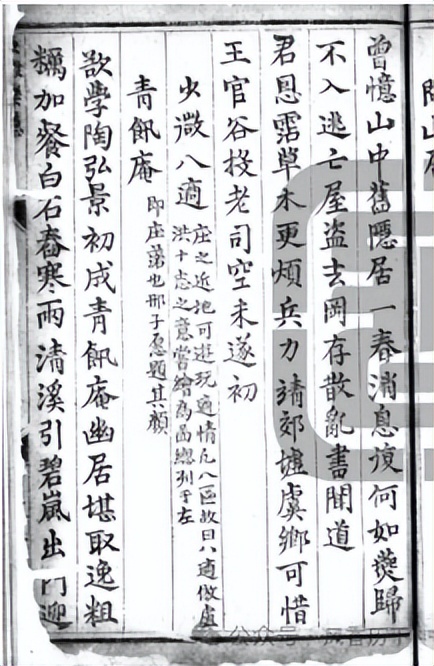 曾憶山中舊隱居一春消息復何如燕歸
不入逃亡屋盜去岡存散亂書聞道
君恩霑草木更煩兵力靖郊墟虞鄉可惜
王官谷投老司空未遂初
少微八適
庄之近地可遊玩適情凡八區故曰八適倣盧
洪十志之意嘗繪為圖總列于左
青飢庵
即庄第也邢子愿題其顏
欲學陶弘景初成青飢庵幽居堪取逸粗
糲加餐白石舂寒雨清溪引碧嵐出門迎
公众号